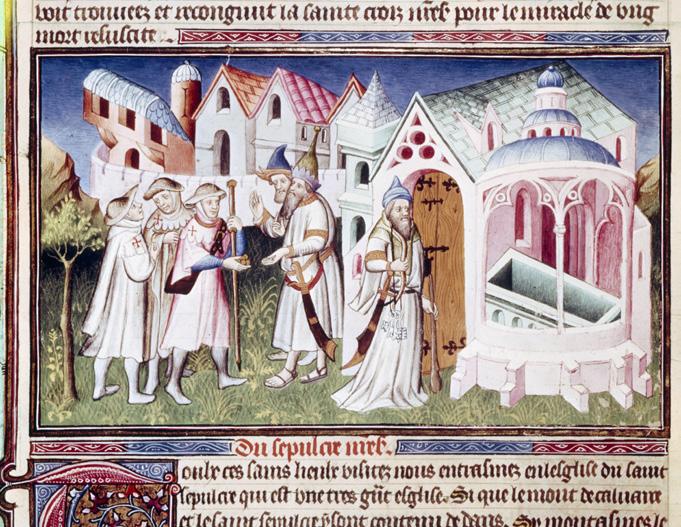 trouveez et recongnut la sainte croiz nr̄es pour le miracle de ung
mort resuscite
Du sepulcre nr̄es.
ces sains lieulx visitez nous entrasmez en lesglise du saint
sepulcre qui est une tres gr̄t esglise. Si que le mont de calvaire
et le saint sepulcre y sont contenu dedans. Si montasmes le